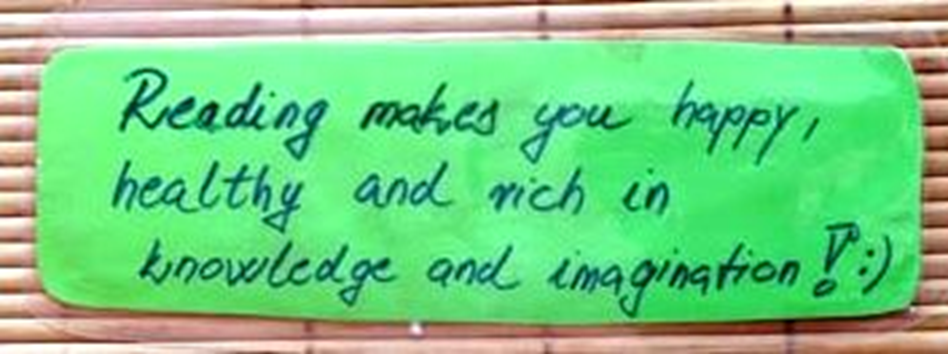 Reading makes you happy,
healthy and rich in
knowledge and imagination! :)